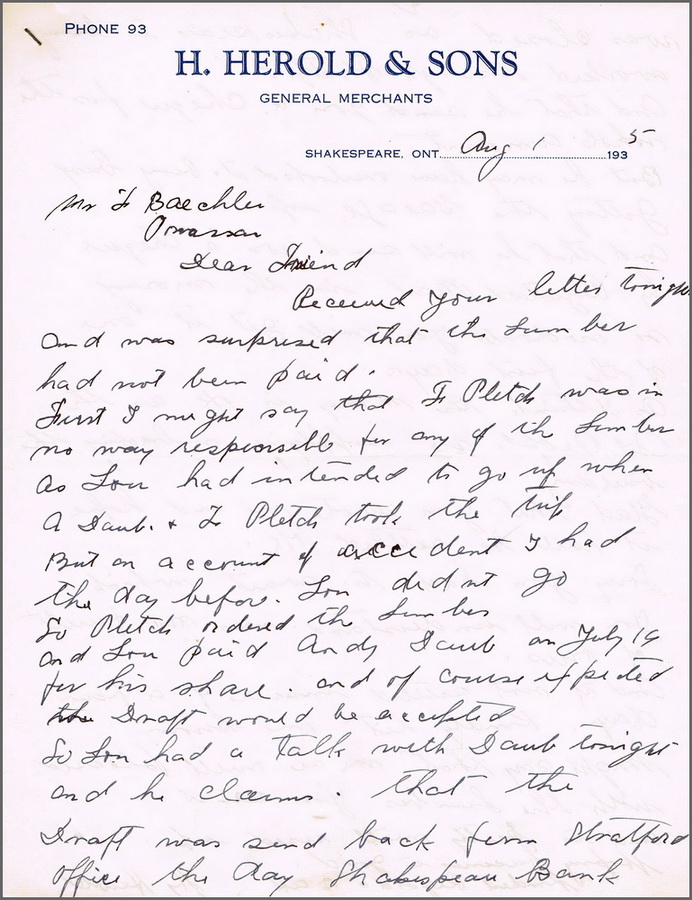 PHONE 93
H. HEROLD & SONS
GENERAL MERCHANTS
SHAKESPEARE, ONT. Aug 1 1935
Mr F Baechler
Dear Friend
Received your letter tonight
and was surprised that the Lumber
had not been paid.
First I might say that F Pletch was in
no way responsible for any of the Lumber
as Lou had intended to go up when
A Daub. & F Pletch took the trip
But on account of accident I had
the day before. Lou didnt go
So Pletch ordered the Lumber
and Lou paid Andy Daub on July 19
for his share. and of course expected
the Draft would be accepted
So Lou had a talk with Daub tonight
and he claims. that the
Draft was send back from Stratford
office the day Shakespeare Bank